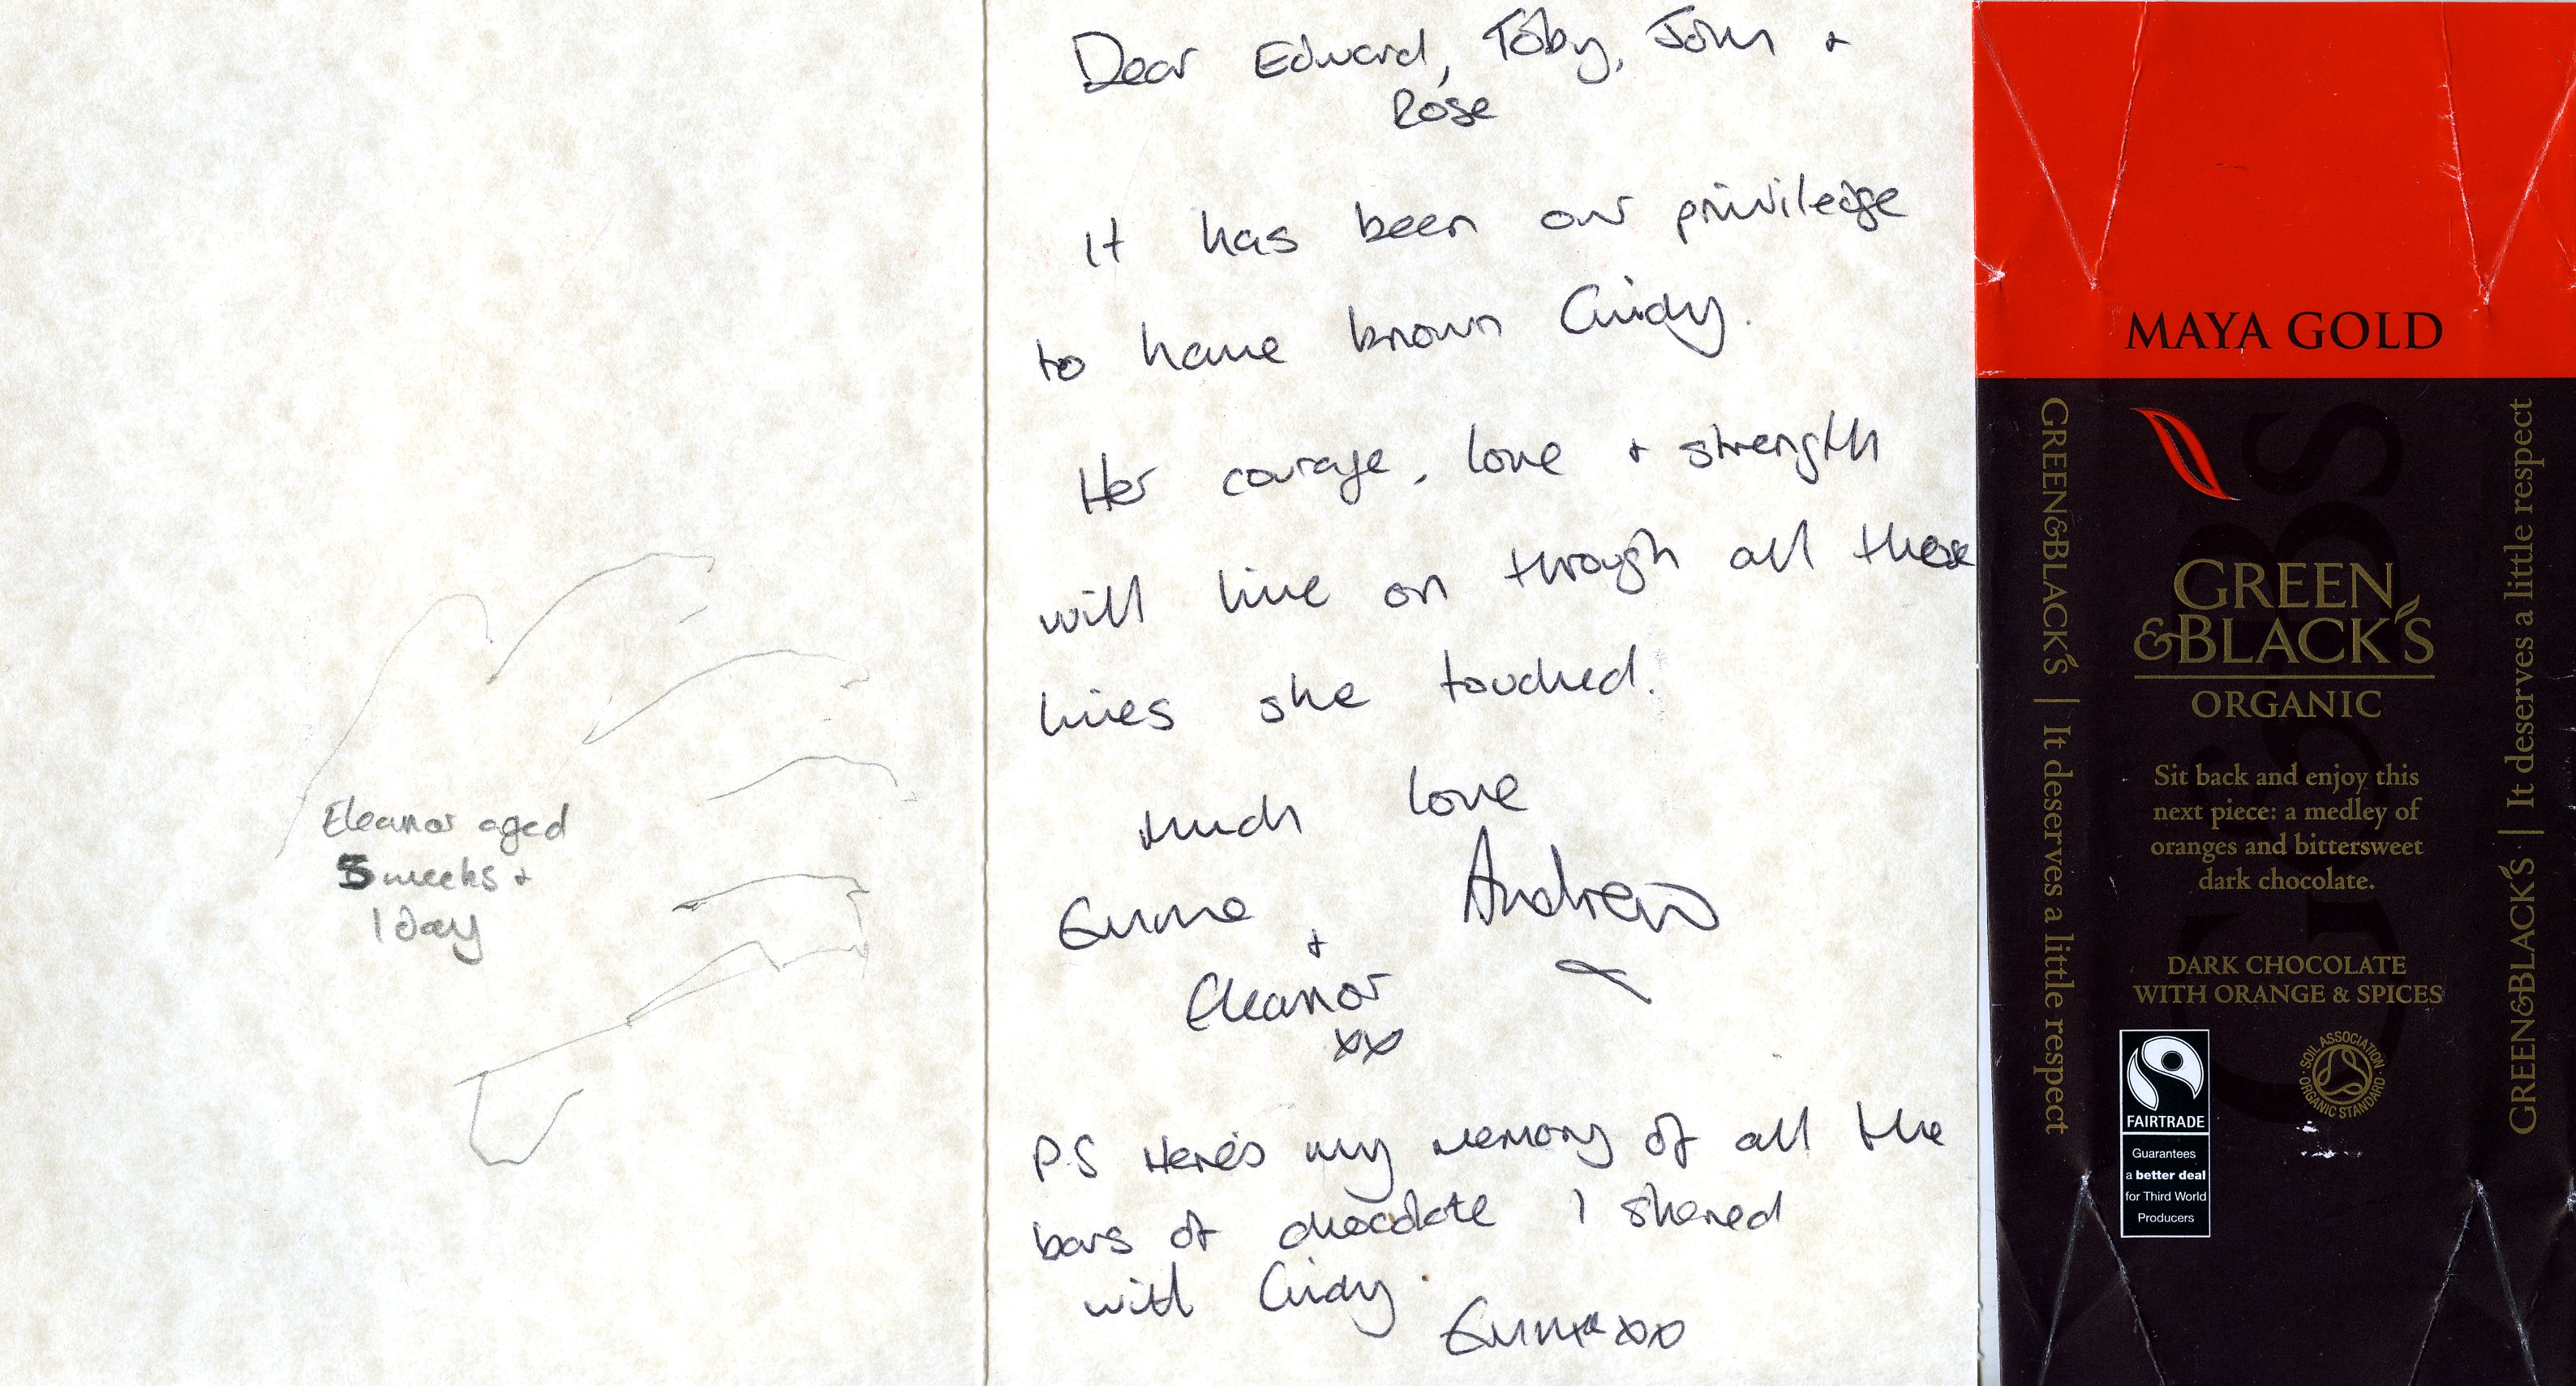 Eleanor aged
5 weeks +
1 day
Dear Edward, Toby, John +
Rose
It has been our priviledge
to have known Cindy.
Her courage, love + strength
will live on through all those
lives she touched.
Much love
Emma Andrew
+
Eleanor
xx
PS Here's my memory of all the
bars of chocolate I shared
with Cindy.
Emma xx
MAYA GOLD
GREEN&BLACK'S | It deserves a little respect
GREEN
&BLACK'S
ORGANIC
Sit back and enjoy this
next piece: a medley of
oranges and bittersweet
dark chocolate.
DARK CHOCOLATE
WITH ORANGE & SPICES
FAIRTRADE
Guarantees
a better deal
for Third World
Producers
SOIL ASSOCIATION
ORGANIC STANDARD
GREEN&BLACK'S | It deserves a little respect